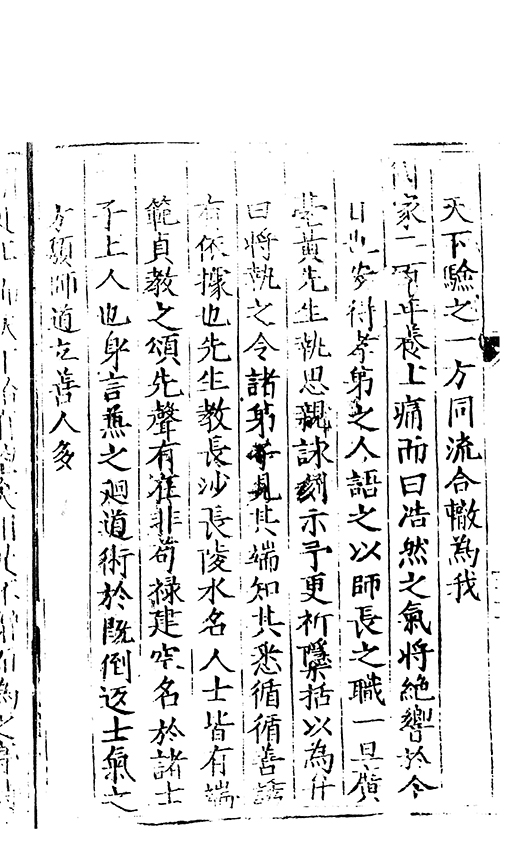 天下驗之一方同流合轍為我
國家二百年養士痛而曰浩然之氣將絕響於今
日也安得孝弟之人語之以師長之職一旦廣
黃先生執思親詠刻示予更析隱括以為什
曰將執之令諸弟見其端知其悉循循善誘
有依據也先生教長沙長陵水名人士皆有端
範貞教之頌先聲有在非苟祿建空名於諸士
子上人也身言焦之迴道術於既倒返士氣之
方頹師道立善人多